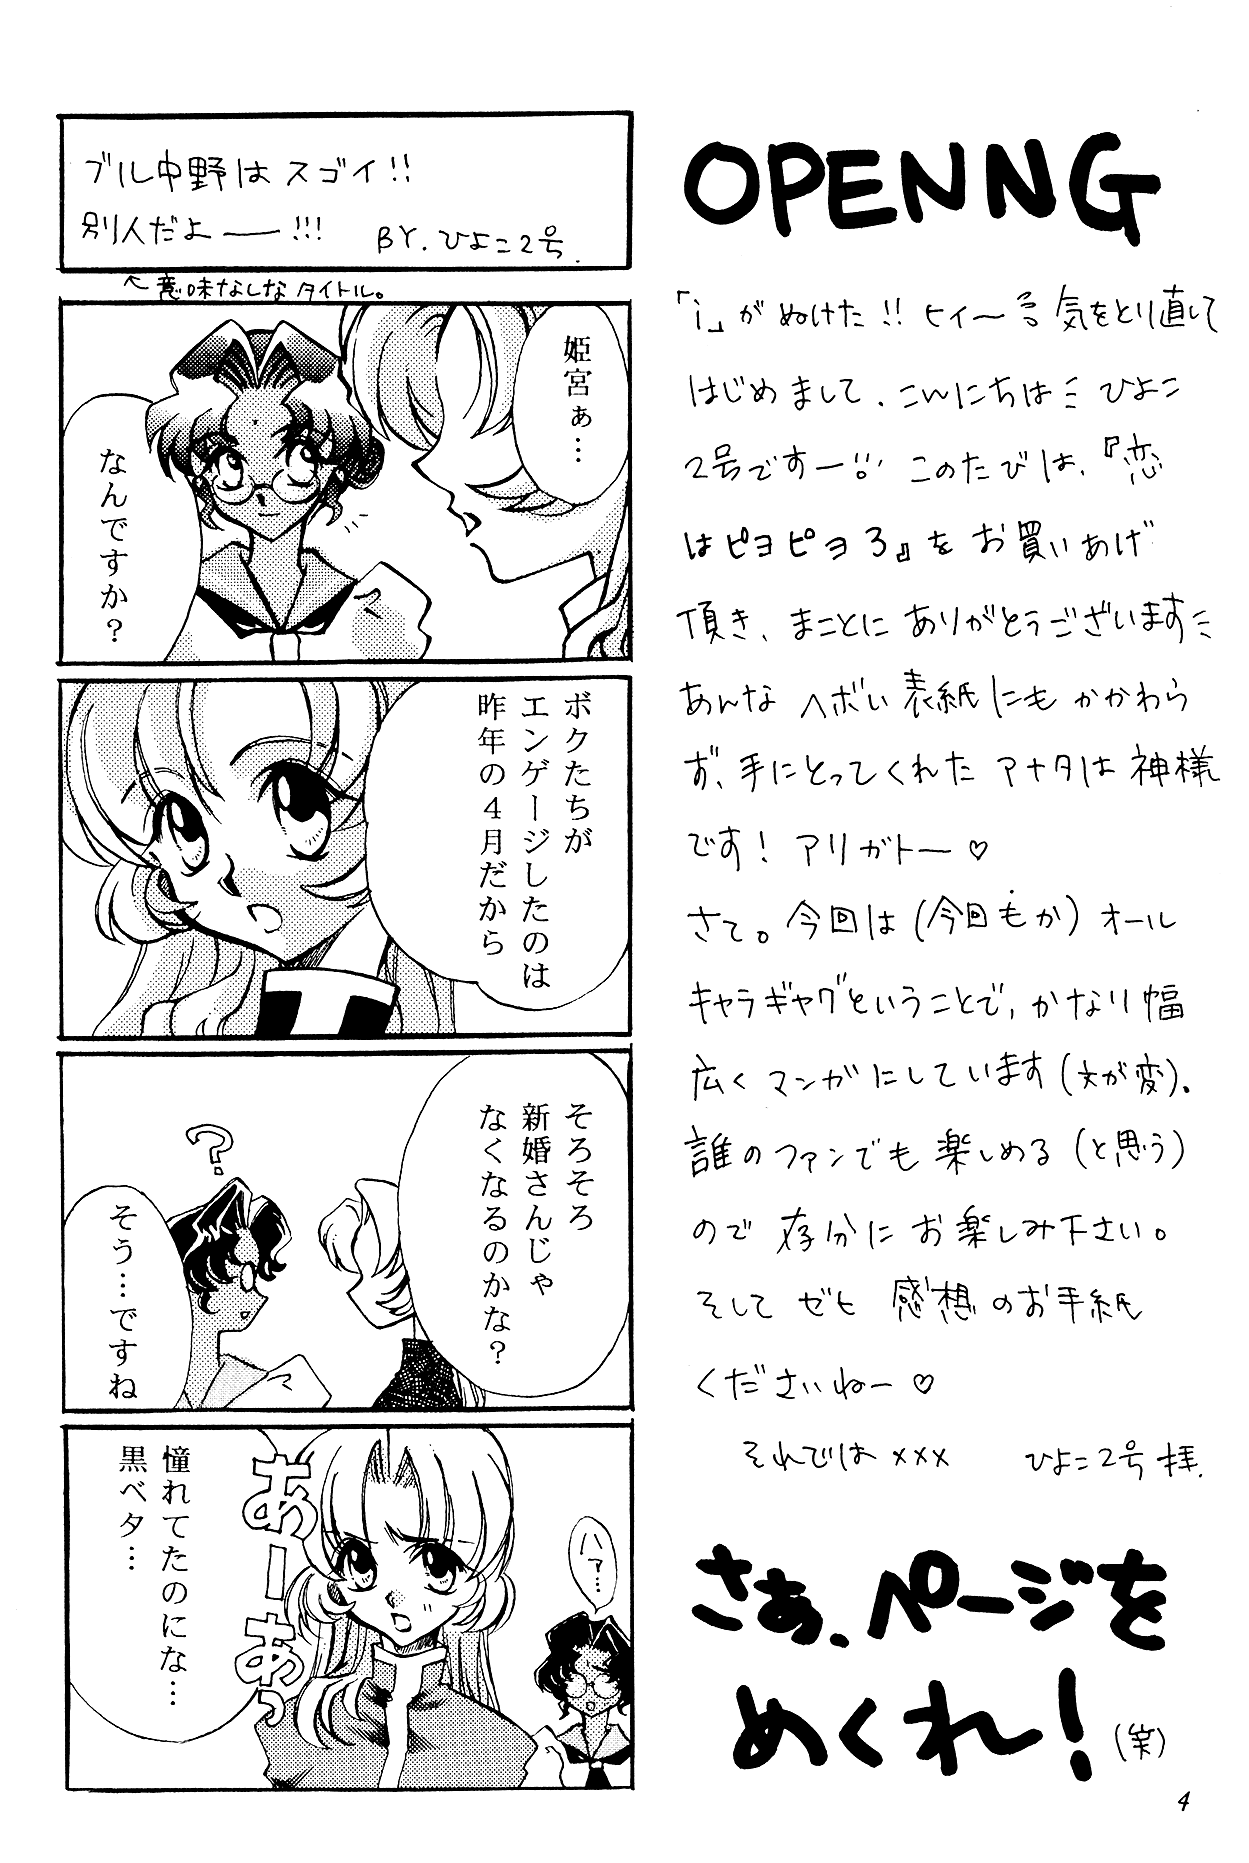 OPENNG
「i」がぬけた!! ヒィ〜 気をとり直して
はじめまして、こんにちは ひよこ
2号ですー!! このたびは、『恋
はピヨピヨ3』をお買いあげ
頂き、まことにありがとうございます
あんなヘボい表紙にもかかわら
ず、手にとってくれたアナタは神様
です! アリガトー♡
さて。今回は(今回もか)オール
キャラギャグということで、かなり幅
広くマンガにしています(文が変)。
誰のファンでも楽しめる(と思う)
ので存分にお楽しみ下さい。
そしてゼヒ感想のお手紙
くださいねー♡
それでは×××　ひよこ2号 拝.
さあ、ページを
めくれ!(笑)
ブル中野はスゴイ!!
別人だよ――!!! BY.ひよこ2号.
←意味なしなタイトル。
姫宮ぁ…
なんですか?
ボクたちが
エンゲージしたのは
昨年の4月だから
そろそろ
新婚さんじゃ
なくなるのかな?
?
そう…ですね
あーあっ
憧れてたのにな…
黒ベタ…
ハァ…
4